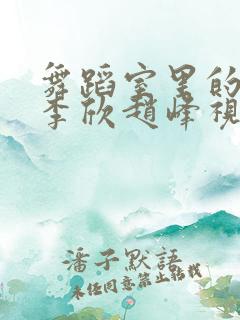 舞蹈室里的
李欣赵峰视
潘子默語
未经同意禁止转载